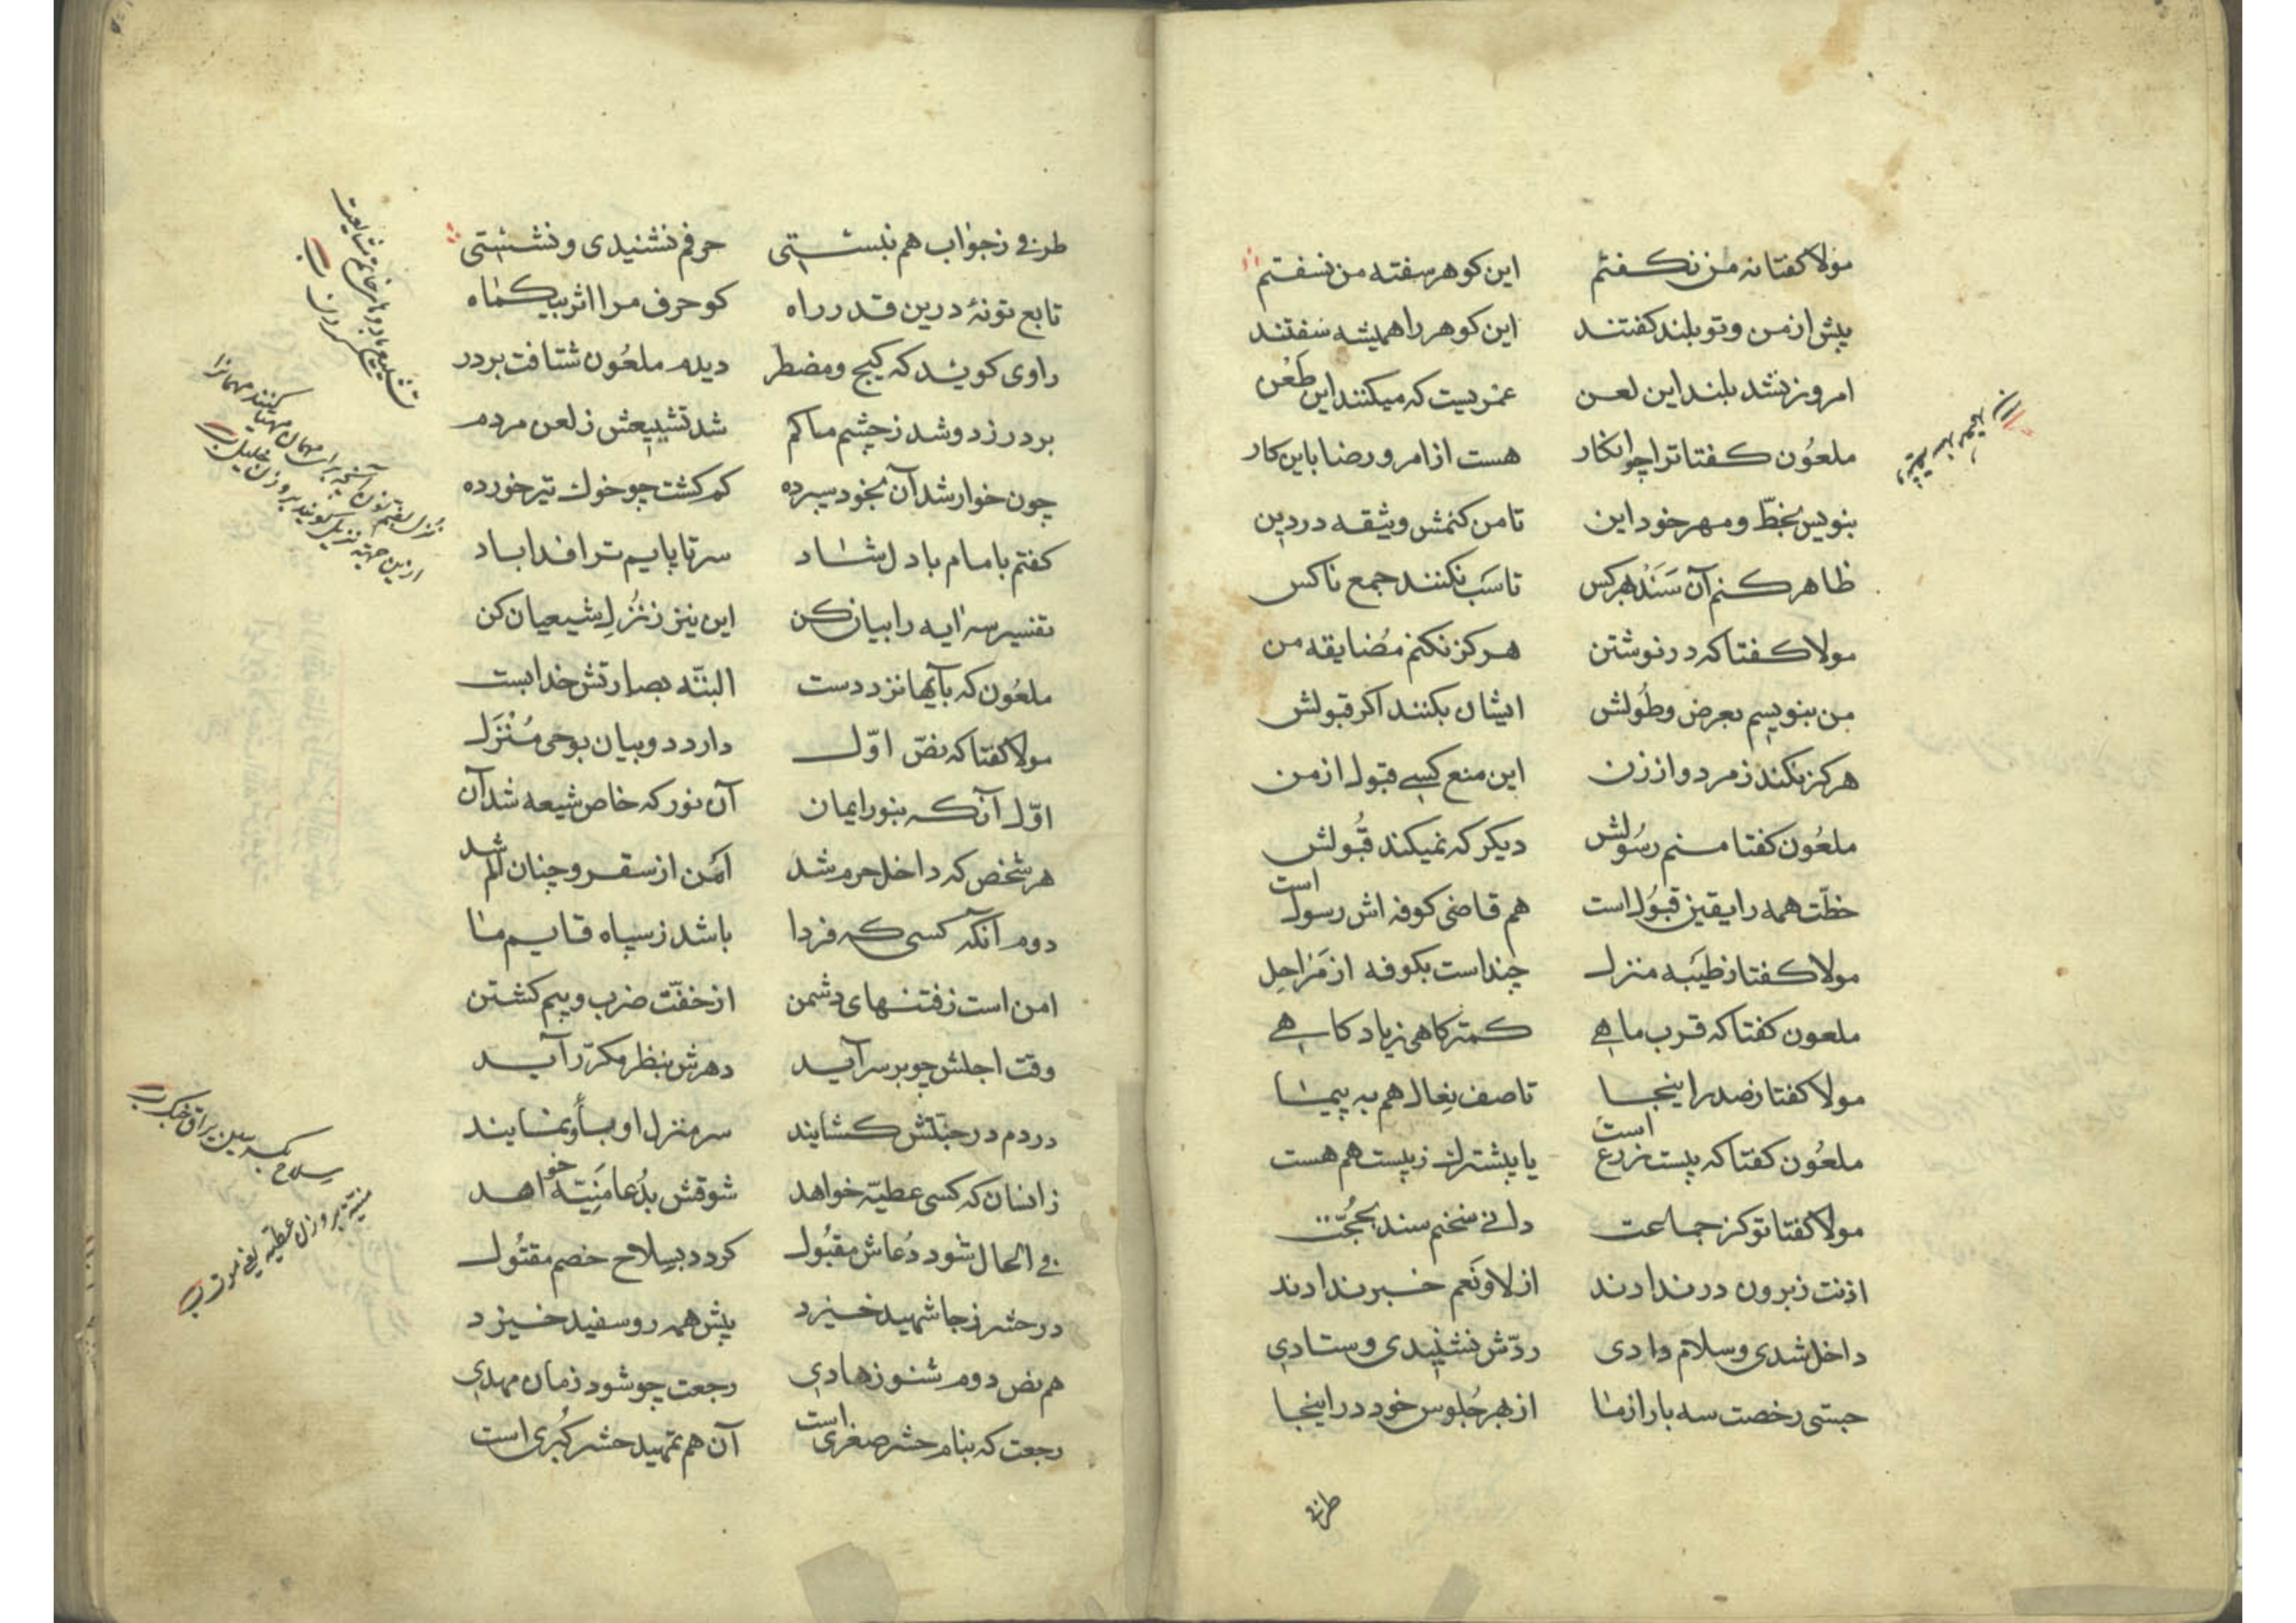 مولا کفتا نه من نکفتم این کوهر سفته من نسفتم
پیش از من و تو بلند کفتند این کوهر را همیشه سفتند
امروز نشد بلند این لعن عمریست که میکنند این طعن
ملعُون کفتا ترا چو انکار هست از امر و رضا باین کار
بنویس بخطّ و مهر خود این تا من کنمش وثیقه در دین
ظاهر کنم آن سَنَد بهر کس تا سَب نکنند جمع ناکس
مولا کفتا که در نوشتن هرکز نکنم مُضایقه من
من بنویسم بعرض و طُولش ایشان بکنند اکر قبولش
هرکز نکند ز مرد و از زن این منع کسی قبول از من
ملعُون کفتا منم رسُولش دیکر که نمیکند قبُولش
خطّت همه را یقین قبوُل است هم قاضی کوفه اش رسول است
مولا کفتا ز طَیبَه منزل چند است بکوفه از مَراحِل
ملعون کفتا که قرب ماهی کمتر کاهی زیاد کاهی
مولا کفتا ز صدر اینجا تا صف نِعال هم به پیما
ملعُون کفتا که بیست ذرع است یا بیشترک ز بیست هم هست
مولا کفتا تو کز جماعت دانی سخنم سند بحُجّت
اذنت ز برون در ندادند از لا و نَعم خبر ندادند
داخل شدی و سلام دادی ردّش نشنیدی و ستادی
جستی رخصت سه بار از ما از بهر جُلوس خود در اینجا
طرفی
طرفی ز جواب هم نبستی حرفم نشنیدی و نشستی
تابع تونهٔ درین قدر راه کو حرف مرا اثر بیکماه
راوی کوید که کیج و مضطر دیدم ملعُون شتافت بر در
بر در زد و شد ز چشم ما کم شد تشییعش ز لعن مردم
چون خوار شد آن بخود سپرده کم کشت چو خوك تیر خورده
کفتم بامام با دل شاد سر تا پایم ترا فدا باد
تفسیر سه ایه را بیان کن این نیز ز نُزُلِ شیعیان کن
ملعُون که بآنها نزد دست البتّه بصارتش خدا بست
مولا کفتا که نصّ اوّل دارد دو بیان بوحی مُنْزَل
اوّل آنکه بنور ایمان آن نور که خاص شیعه شد آن
هر شخص که داخل حرم شد ایمن از سقر و چنان الم شد
دوم آنکه کسی که فردا باشد ز سپاه قایم ما
امن است ز فتنهای دشمن از خفّت ضرب و بیم کشتن
وقت اجلش چو بر سر آید دهرش بنظر مکرّر آید
در دم در جنّتش کشایند سر منزل او باو نمایند
زانسان که کسی عطیّه خواهد شوقش بدُعا مَنِیَّه خواهد
فی الحال شود دُعاش مقبُول کردد بسِلاح خصم مقتُول
در حشر ز جا شهید خیزد پیش همه رو سفید خیزد
هم نص دوم شنو ز هادی رجعت چو شود زمان مهدی
رجعت که بنام حشر صغری است آن هم تمهید حشر کُبری است
منیّة بر وزن عطیّه یعنی موت